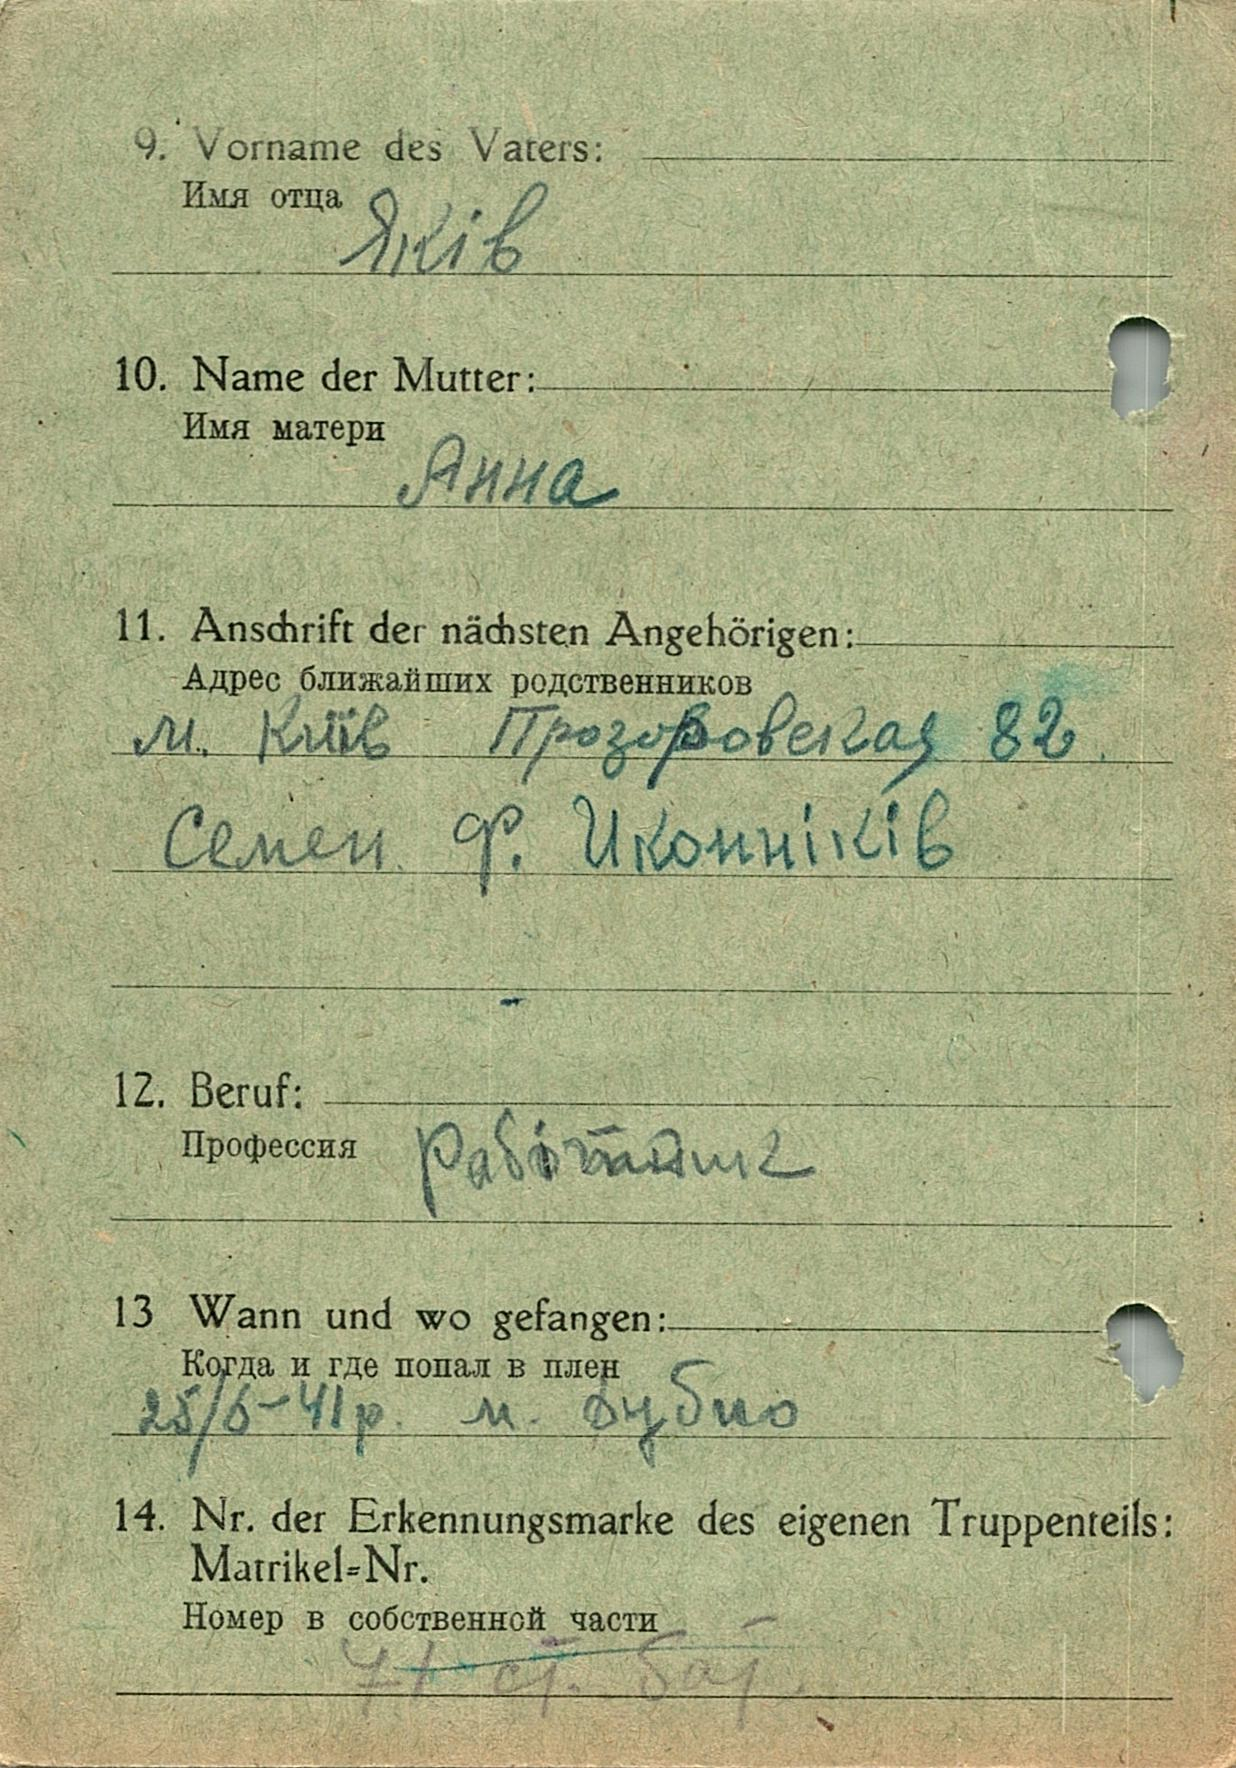 9. Vorname des Vaters:
Имя отца
Яків
10. Name der Mutter:
Имя матери
Анна
11. Anschrift der nächsten Angehörigen:
Адрес ближайших родственников
м. Київ Прозоровская 82.
Семен Ф. Иконніків
12. Beruf:
Профессия
13 Wann und wo gefangen:
Когда и где попал в плен
25/6-41р. м. Дубно
14. Nr. der Erkennungsmarke des eigenen Truppenteils:
Matrikel-Nr.
Номер в собственной части
71 ст. бат.